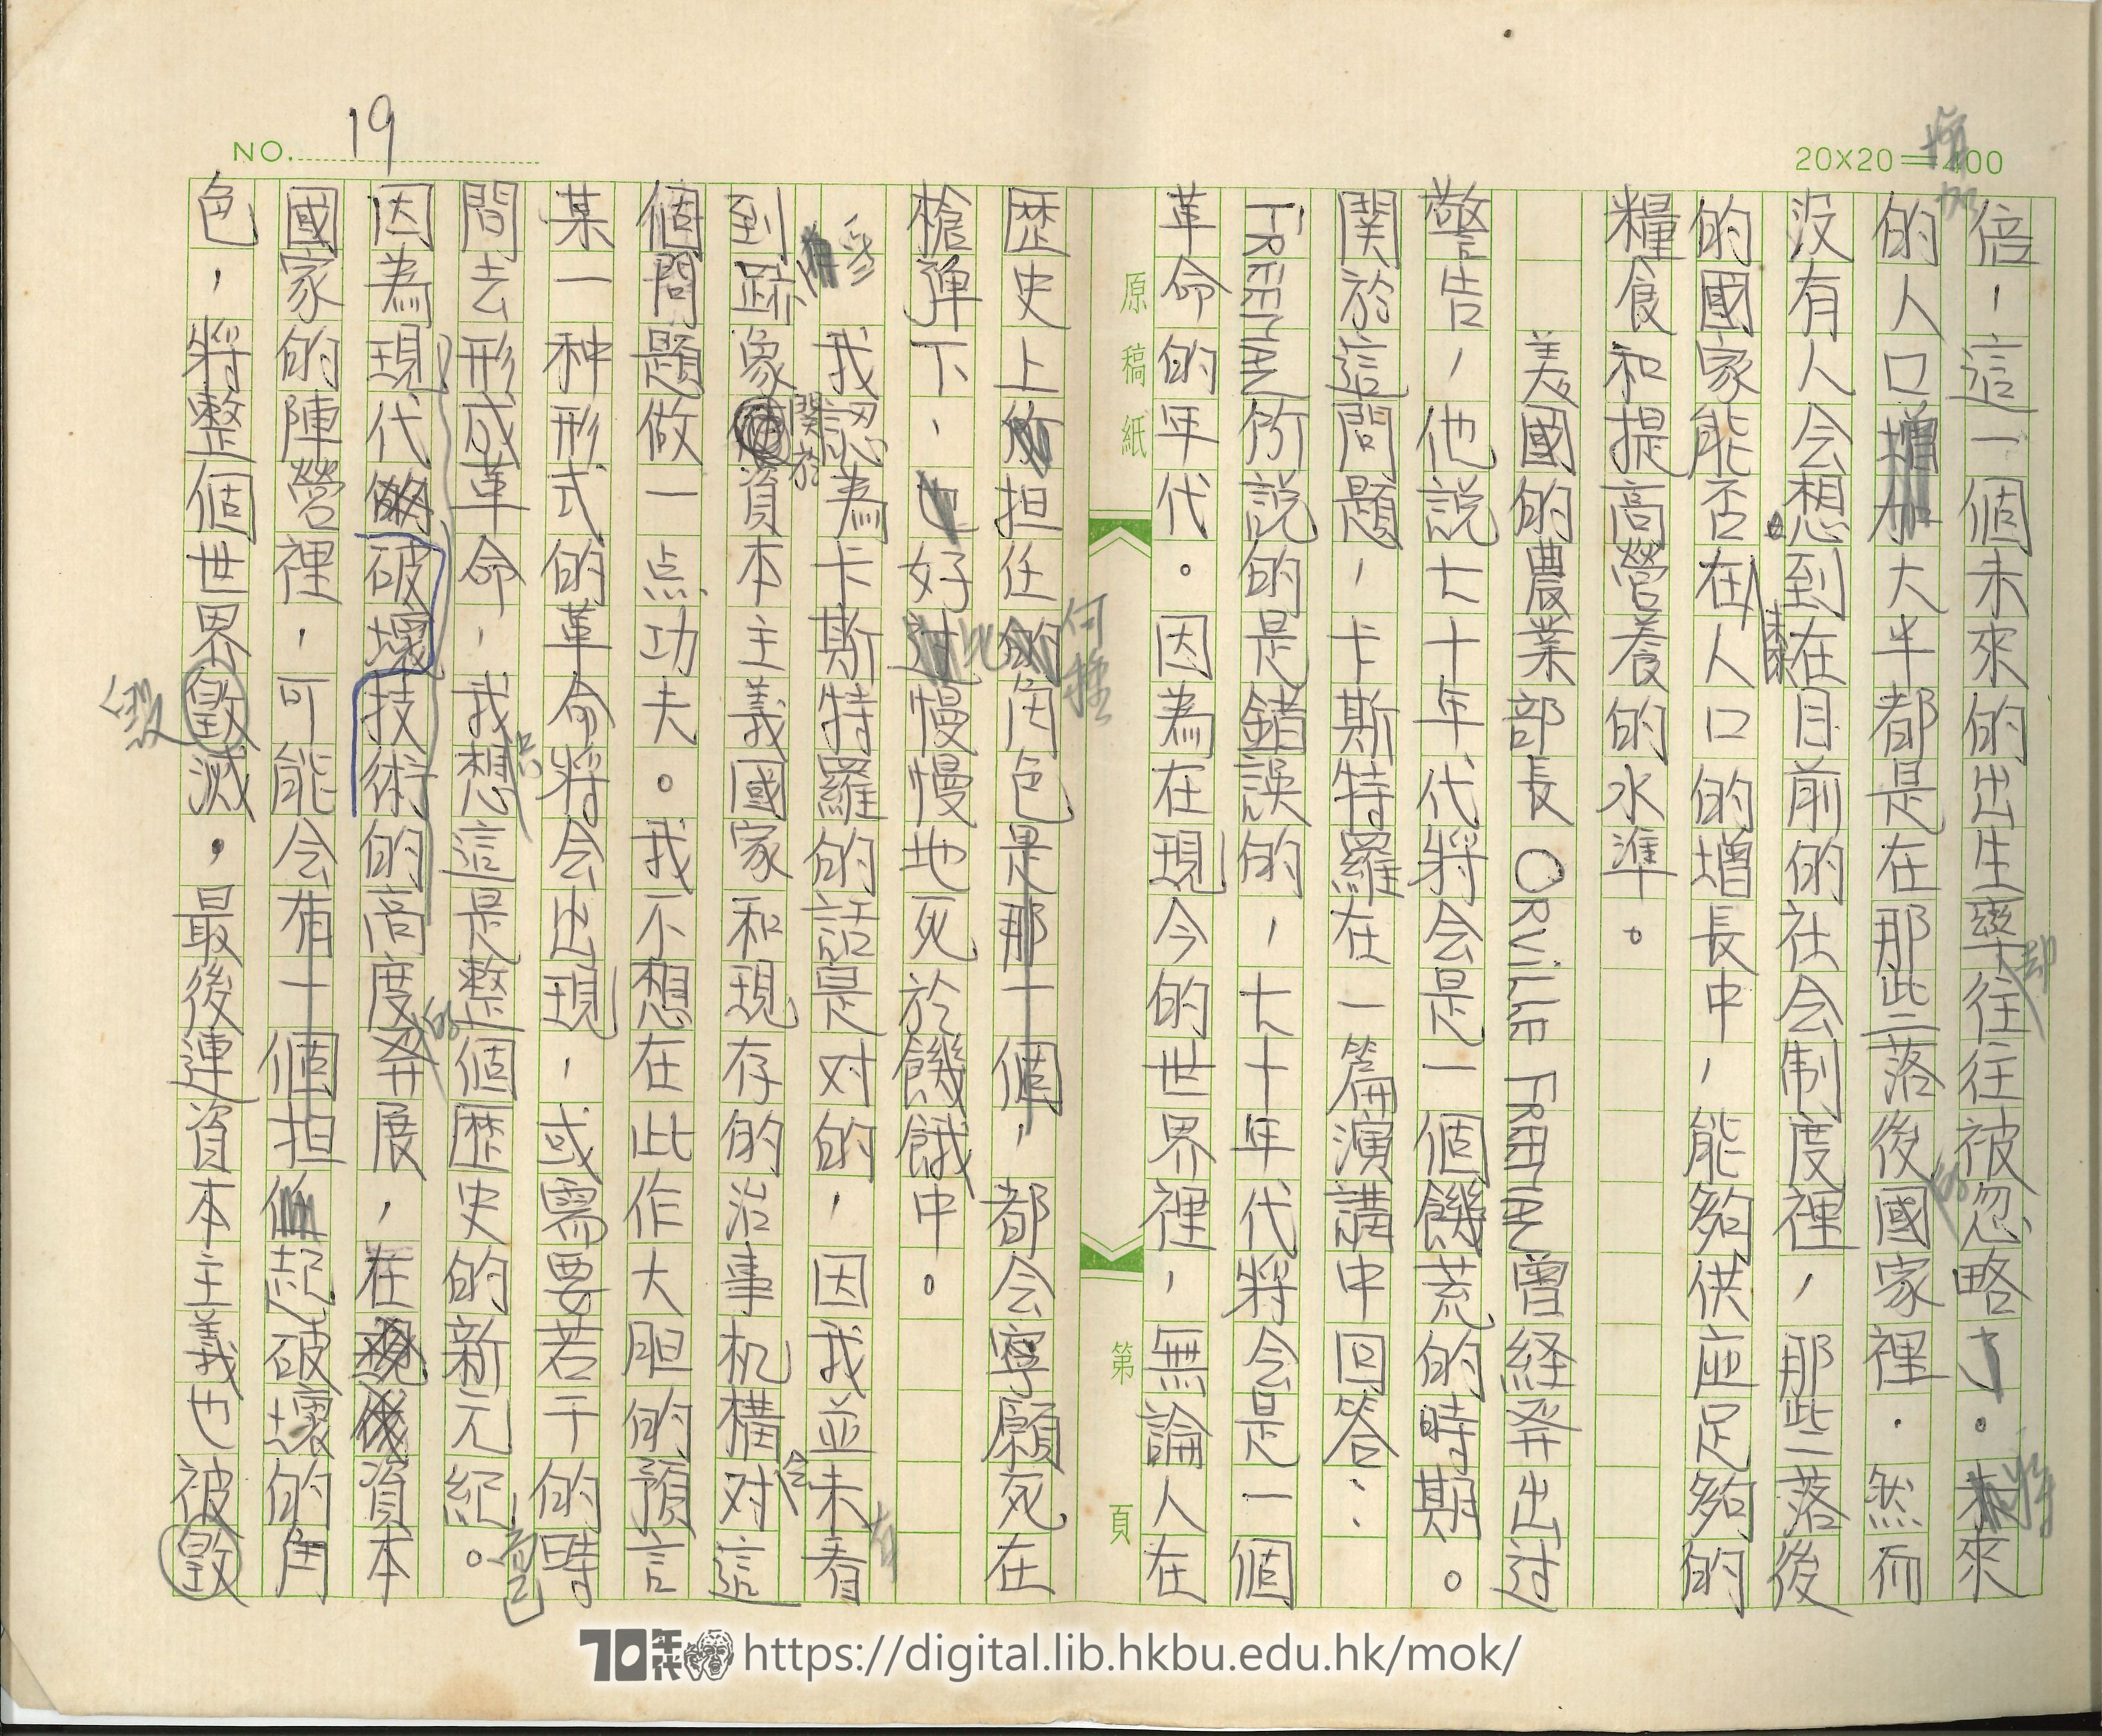 20X20=400
NO. 19
倍，這一個未來的出生率却往往被忽略了。將來
的人口增加大半都是在那些落後的國家裡．然而
没有人会想到在目前的社会制度裡，那些落後
的國家能否在未來人口的增長中，能夠供应足夠的
糧食和提高營養的水準。
美國的農業部長 ORVILLE FREEMAN 曾経発出过
警告，他説七十年代將会是一個饑荒的時期。
関於這問題，卡斯特羅在一篇演講中回答：
FREEMAN所説的是錯誤的，七十年代將会是一個
革命的年代。因為在現今的世界裡，無論人在
原稿紙
第 頁
歴史上担任何種角色是那一個，都会寧願死在
槍弾下，好比慢慢地死於饑餓中。
我認為卡斯特羅的話是对的，因我並未看
到跡象関於資本主義國家和現存的治事机構会对這
個問題做一点功夫。我不想在此作大胆的預言
某一种形式的革命將会出現，或需要若干的時
間去形成革命，我想這是整個歴史的新元紀。
因為現代破壞技術的高度的発展，在資本
國家的陣營裡，可能会有一個担起破壞的角
色，將整個世界毀滅，最後連資本主義也被毀
毀